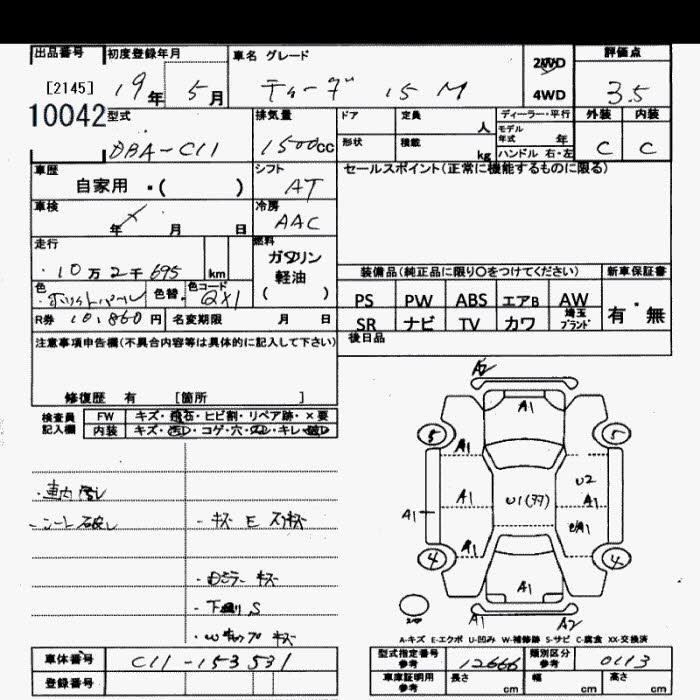 出品番号 初度登録年月 車名 グレード 2WD 評価点
[2145] 19年 5月 ティーダ 15 M 4WD 3.5
10042 型式 排気量 ドア 定員 人 ディーラー・平行 外装 内装
DBA-C11 1500cc 形状 積載 kg モデル年式 年 ハンドル 右・左 C C
車歴 シフト セールスポイント(正常に機能するものに限る)
自家用 ・( ) AT
車検 冷房
年 月 日 AAC
走行 燃料
10万2千695 km ガソリン
軽油
( )
装備品(純正品に限り〇をつけてください) 新車保証書
色 色替 色コード QX1
PS PW ABS エアB AW 有・無
SR ナビ TV カワ 埼玉ブランド
R券 10,860円 名変期限 月 日
後日品
注意事項申告欄(不具合内容等は具体的に記入して下さい)
修復歴 有 [箇所 ]
検査員記入欄 FW キズ・飛石・ヒビ割・リペア跡・×要
内装 キズ・汚レ・コゲ・穴・スレ・キレ・破レ
A2
A1
5 5
A1
U2
A1 A1 U1 A1
A1
4 4
A1
A1 A2
・シート破レ ・キズ E スリキズ
・下廻り S
A-キズ E-エクボ U-凹み W-補修跡 S-サビ C-腐食 XX-交換済
車体番号 C11-153531
型式指定番号参考 12666 類別区分参考 0113
登録番号
車庫証明用参考 長さ cm 幅 cm 高さ cm